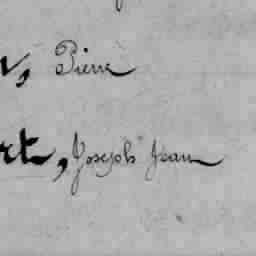 v, Pierre
rt, Joseph Jean